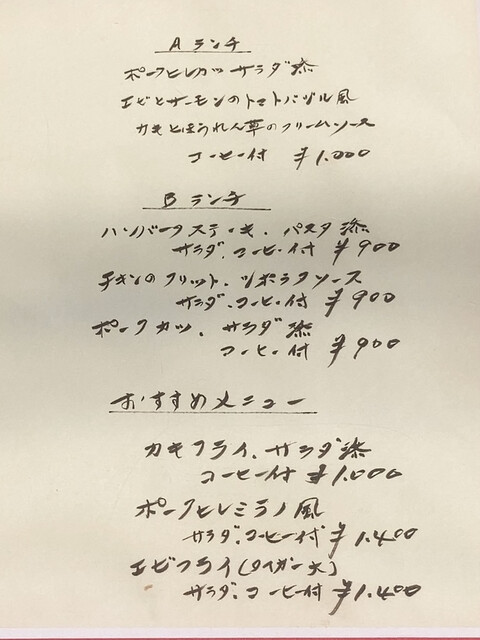 A ランチ
ポークヒレカツ サラダ添
エビとサーモンのトマトバジル風
カキとほうれん草のクリームソース
コーヒー付 ¥1.000
B ランチ
ハンバーグステーキ、パスタ添
サラダ、コーヒー付 ¥900
チキンのフリット、ソース
サラダ、コーヒー付 ¥900
ポークカツ、サラダ添
コーヒー付 ¥900
おすすめメニュー
カキフライ、サラダ添
コーヒー付 ¥1.000
ポークヒレミラノ風
サラダ、コーヒー付 ¥1.400
エビフライ(タイガー大)
サラダ、コーヒー付 ¥1.400